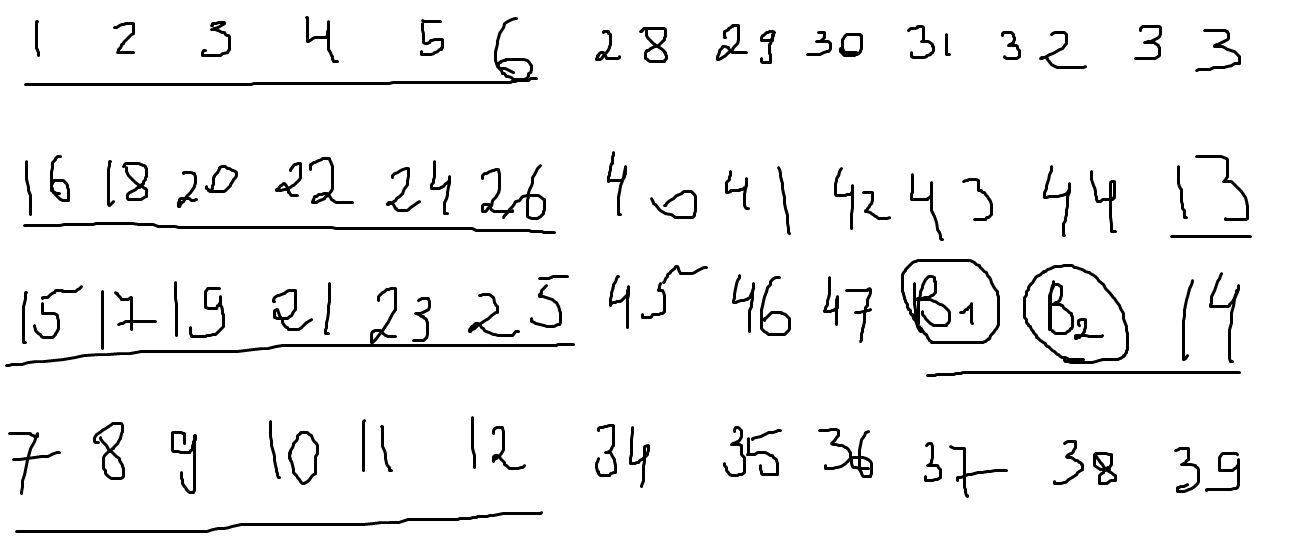 1 2 3 4 5 6 28 29 30 31 32 33
16 18 20 22 24 26 40 41 42 43 44 13
15 17 19 21 23 25 45 46 47 B1 B2 14
7 8 9 10 11 12 34 35 36 37 38 39